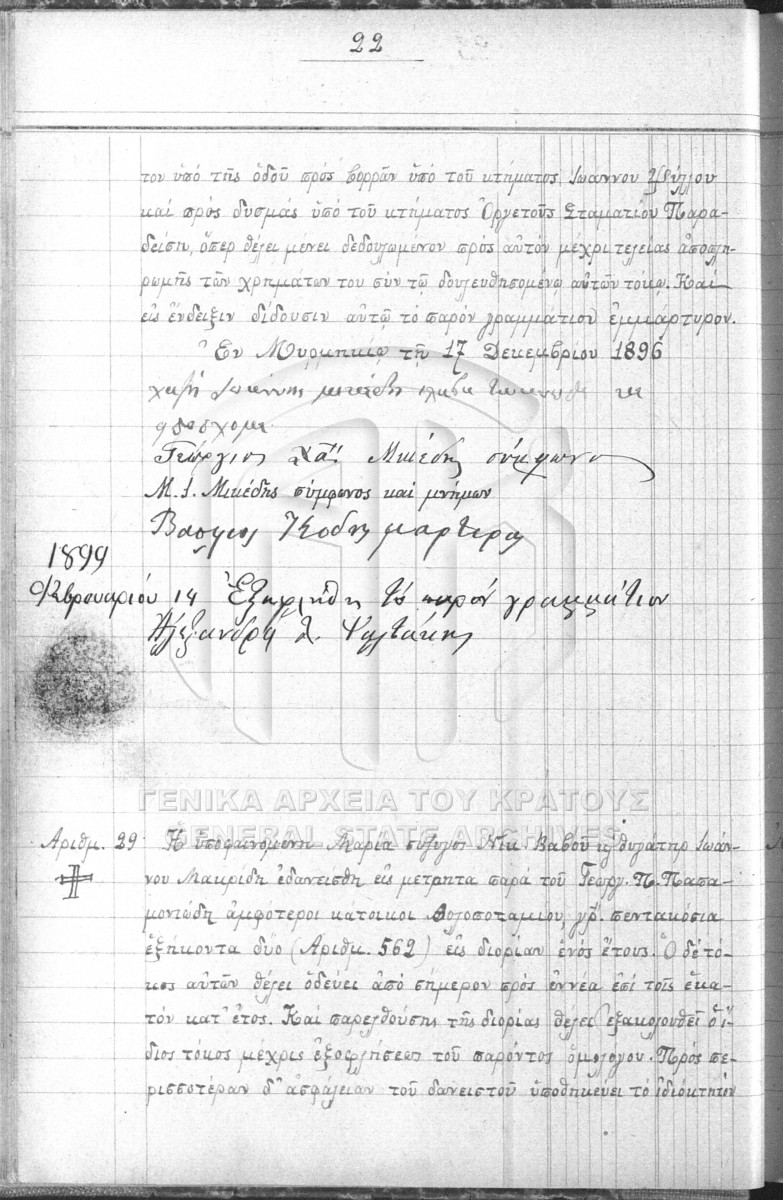 22
τον ὑπό τῆς ὁδοῦ πρός βορρᾶν ὑπό τοῦ κτήματος Ἰωάννου
καί πρός δυσμάς ὑπό τοῦ κτήματος Σταματίου Παρα-
δείση, ὅπερ θέλει μένει δεδουλωμένον πρός αὐτόν μέχρι τελείας ἀποπλη-
ρωμῆς τῶν χρημάτων του σύν τῷ δουλευθησομένῳ αὐτῶν τόκῳ. Καί
εἰς ἔνδειξιν δίδουσιν αὐτῷ τό παρόν γραμμάτιον ἐμμάρτυρον.
Ἐν Μυρμηκίῳ τῇ 17 Δεκεμβρίου 1896
χατζῆ Ἰωάννης
Γεώργιος Χα: Μικέδης σύμφωνο
Μ. Ι. Μικέδης σύμφωνος καί μνήμων
Βασηλιος μαρτιρα
1899
Φεβρουαρίου 14 Ἐξωφλήθη τό παρόν γραμμάτιον
Ἀλεξάνδρα Ψαλτάκης
ΓΕΝΙΚΑ ΑΡΧΕΙΑ ΤΟΥ ΚΡΑΤΟΥΣ
GENERAL STATE ARCHIVES
Αριθμ. 29 Ἡ ὑποφαινομένη Μαρία σύζυγος Νικ. Βαβοῦ θυγάτηρ Ἰωάν-
νου Μακρίδη ἐδανείσθη εἰς μετρητά παρά τοῦ Γεωργ. Π. Παπα-
μονιώδη ἀμφότεροι κάτοικοι Δολοποταμίου γρ. πεντακόσια
ἑξήκοντα δύο (Ἀριθ. 562) εἰς διορίαν ἑνός ἔτους. Ὁ δέ τό-
κος αὐτῶν θέλει ὁδεύει ἀπό σήμερον πρός ἐννέα ἐπί τοῖς ἑκα-
τόν κατ' ἔτος. Καί παρελθούσης τῆς διορίας θέλει ἐξακολουθεῖ ὁ ἴ-
διος τόκος μέχρις ἐξοφλήσεως τοῦ παρόντος ὁμολόγου. Πρός πε-
ρισσοτέραν δ' ἀσφάλειαν τοῦ δανειστοῦ ὑποθηκεύει τό ἰδιόκτητόν